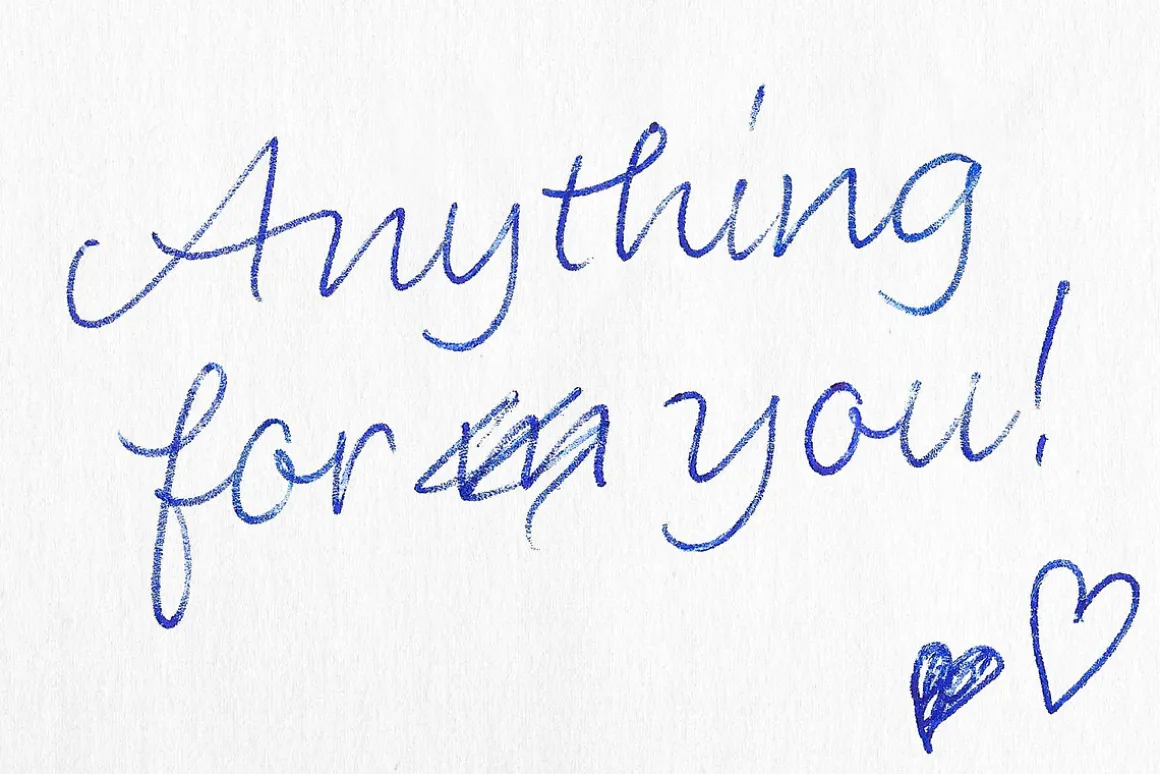 Anything
for you!